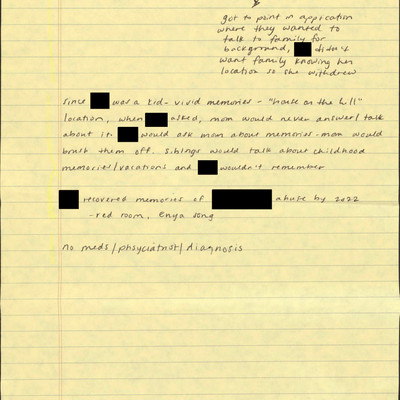 got to point in application
where they wanted to
talk to family for
background, didn't
want family knowing her
location so she withdrew
since was a kid - vivid memories - "house on the hill"
location, when asked, mom would never answer/talk
about it. would ask mom about memories - mom would
brush them off. siblings would talk about childhood
memories/vacations and wouldn't remember
recovered memories of abuse by 2022
- red room, Enya song
no meds/phsyciatrist/diagnosis